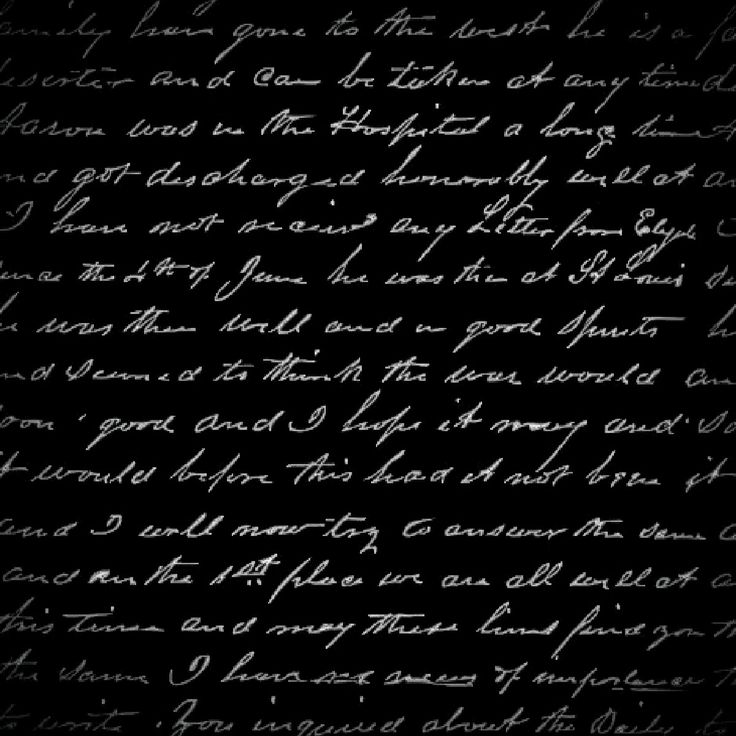 family have gone to the west he is a
and can be taken at any time
Aaron was in the Hospital a long time
and got discharged honorably well at
I have not received any Letter from
since the 4th of June he was then at St Louis
he was then well and in good spirits
and seemed to think the war would
soon good and I hope it may and so
it would before this had it not been it
and I will now try to answer the same
and in the 1st place we are all well at
this time and may these lines find you
the same I have no news of importance
to write. You inquired about the